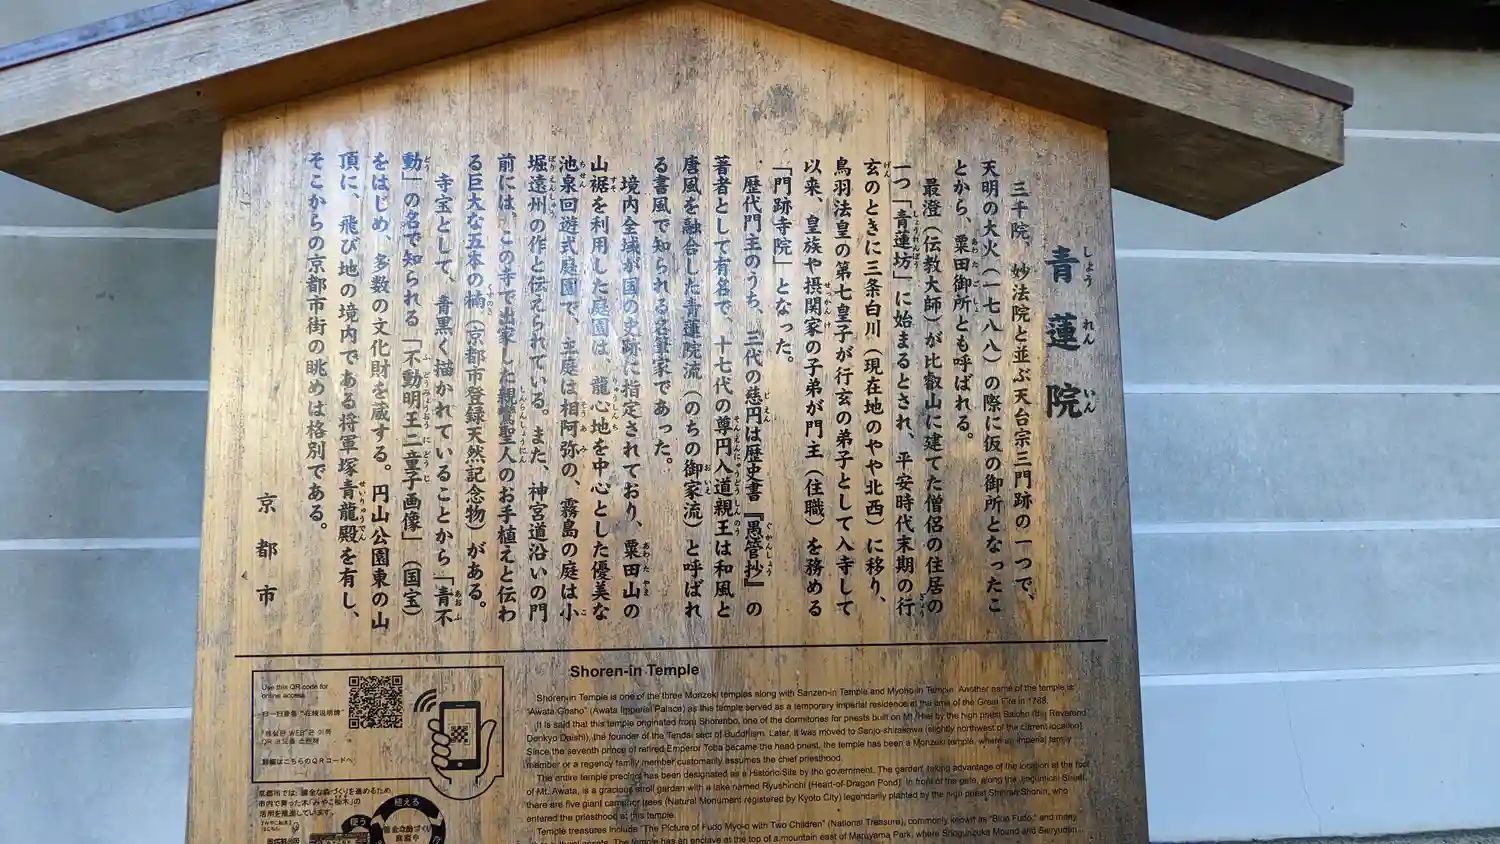 青蓮院
三千院、妙法院と並ぶ天台宗三門跡の一つで、
天明の大火（一七八八）の際に仮の御所となったこ
とから、粟田御所とも呼ばれる。
最澄（伝教大師）が比叡山に建てた僧侶の住居の
一つ「青蓮坊」に始まるとされ、平安時代末期の行
玄のときに三条白川（現在地のやや北西）に移り、
鳥羽法皇の第七皇子が行玄の弟子として入寺して
以来、皇族や摂関家の子弟が門主（住職）を務める
「門跡寺院」となった。
歴代門主のうち、三代の慈円は歴史書『愚管抄』の
著者として有名で、十七代の尊円入道親王は和風と
唐風を融合した青蓮院流（のちの御家流）と呼ばれ
る書風で知られる名筆家であった。
境内全域が国の史跡に指定されており、粟田山の
山裾を利用した庭園は、龍心池を中心とした優美な
池泉回遊式庭園で、主庭は相阿弥の、霧島の庭は小
堀遠州の作と伝えられている。また、神宮道沿いの門
前には、この寺で出家した親鸞聖人のお手植えと伝わ
る巨大な五本の楠（京都市登録天然記念物）がある。
寺宝として、青黒く描かれていることから「青不
動」の名で知られる「不動明王二童子画像」（国宝）
をはじめ、多数の文化財を蔵する。円山公園東の山
頂に、飛び地の境内である将軍塚青龍殿を有し、
そこからの京都市街の眺めは格別である。
京都市
Use this QR code for
online access.
詳細はこちらのQRコードへ
京都市では、健全な森づくりを進めるため、
市内で育った木「みやこ杣木」の
活用を推進しています。
植える
使う
Shoren-in Temple
Shoren-in Temple is one of the three Monzeki temples along with Sanzen-in Temple and Myoho-in Temple. Another name of the temple is
"Awata Gosho" (Awata Imperial Palace) as the temple served as a temporary imperial residence at the time of the Great Fire in 1788.
It is said that this temple originated from Shorenbo, one of the dormitories for priests built on Mt. Hiei by the high priest Saicho (Big Reverend
Denkyo Daishi), the founder of the Tendai sect of Buddhism. Later, it was moved to Sanjo-shirakawa (slightly northwest of the current location).
Since the seventh prince of retired Emperor Toba became the head priest, the temple has been a Monzeki temple, where an imperial family
member or a regency family member customarily assumes the chief priesthood.
The entire temple precinct has been designated as a Historic Site by the government. The garden, taking advantage of the location at the foot
of Mt. Awata, is a gracious stroll garden with a lake named Ryushinchi (Heart-of-Dragon Pond). In front of the gate, along the Jingumichi Street,
there are five giant camphor trees (Natural Monument registered by Kyoto City) legendarily planted by the high priest Shinran Shonin, who
entered the priesthood at this temple.
Temple treasures include "The Picture of Fudo Myo-o with Two Children" (National Treasure), commonly known as "Blue Fudo," and many
cultural assets. The temple has an enclave at the top of a mountain east of Maruyama Park, where Shogunzuka Mound and Seiryuden